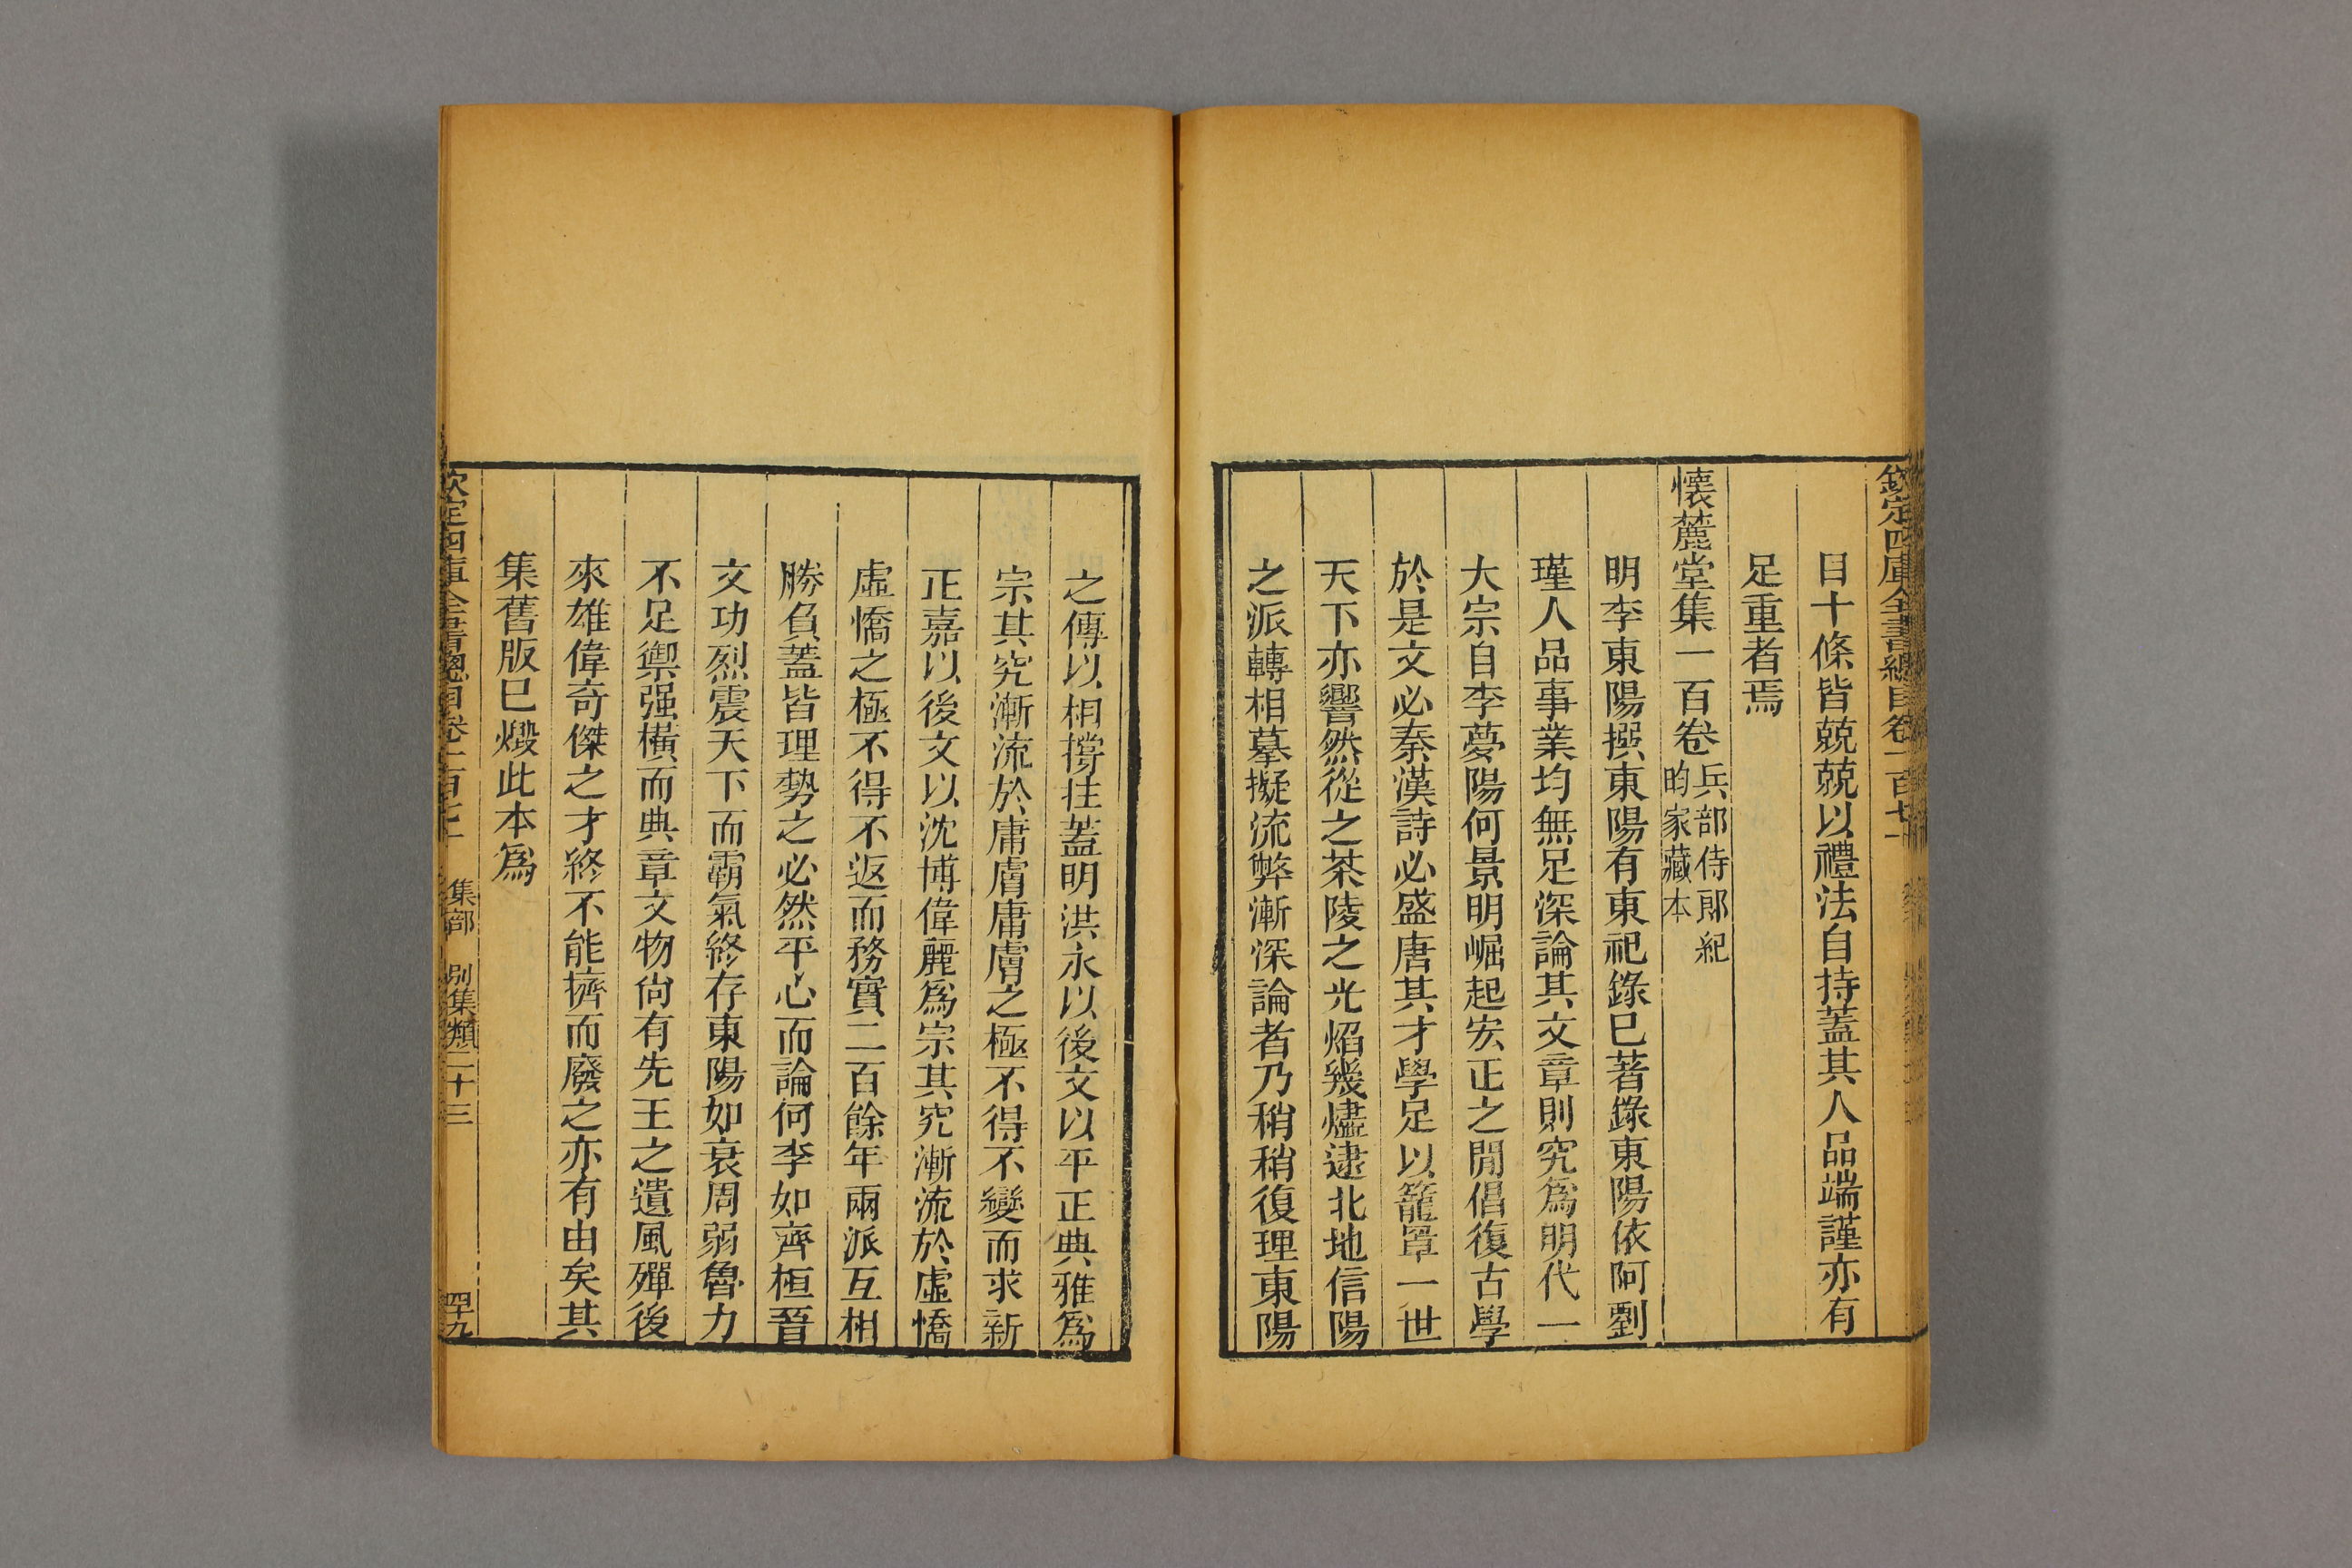 欽定四庫全書總目卷一百七十
日十條皆兢兢以禮法自持蓋其人品端謹亦有
足重者焉
懷麓堂集一百卷兵部侍郎紀
昀家藏本
明李東陽撰東陽有東祀錄已著錄東陽依阿劉
瑾人品事業均無足深論其文章則究爲明代一
大宗自李夢陽何景明崛起宏正之閒倡復古學
於是文必秦漢詩必盛唐其才學足以籠罩一世
天下亦響然從之茶陵之光焰幾燼逮北地信陽
之派轉相摹擬流弊漸深論者乃稍稍復理東陽
之傳以相撐拄蓋明洪永以後文以平正典雅爲
宗其究漸流於庸膚庸膚之極不得不變而求新
正嘉以後文以沈博偉麗爲宗其究漸流於虛憍
虛憍之極不得不返而務實二百餘年兩派互相
勝負蓋皆理勢之必然平心而論何李如齊桓晉
文功烈震天下而霸氣終存東陽如衰周弱魯力
不足禦强橫而典章文物尙有先王之遺風殫後
來雄偉奇傑之才終不能擠而廢之亦有由矣其
集舊版已燬此本爲
欽定四庫全書總目卷一百七十 集部 別集類二十三 四十九